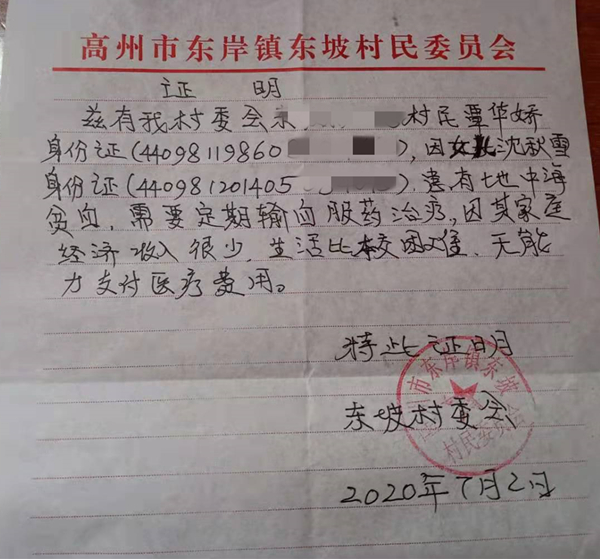 高州市东岸镇东坡村民委员会
证 明
兹有我村委会 村民覃华娇
身份证(44098119860 ),因女儿沈秋雪
身份证(440981201405 ).患有地中海
贫血,需要定期输血服药治疗,因其家庭
经济收入很少,生活比较困难,无能
力支付医疗费用。
特此证明
东坡村委会
2020年7月2日
市东岸镇东坡
村民委员会